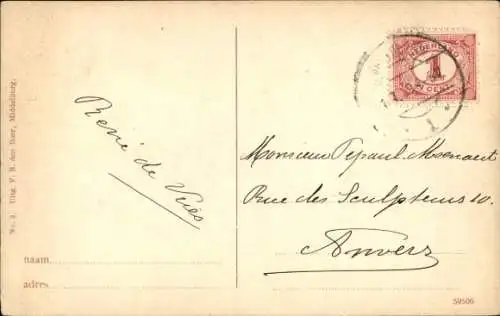 NEDERLAND
1
CENT
No. 3. Uitg. F. B. den Boer, Middelburg.
René de Vries
Monsieur Pepaul-Moenaert
Rue des Sculpteurs 10.
Anvers
naam
adres
59506